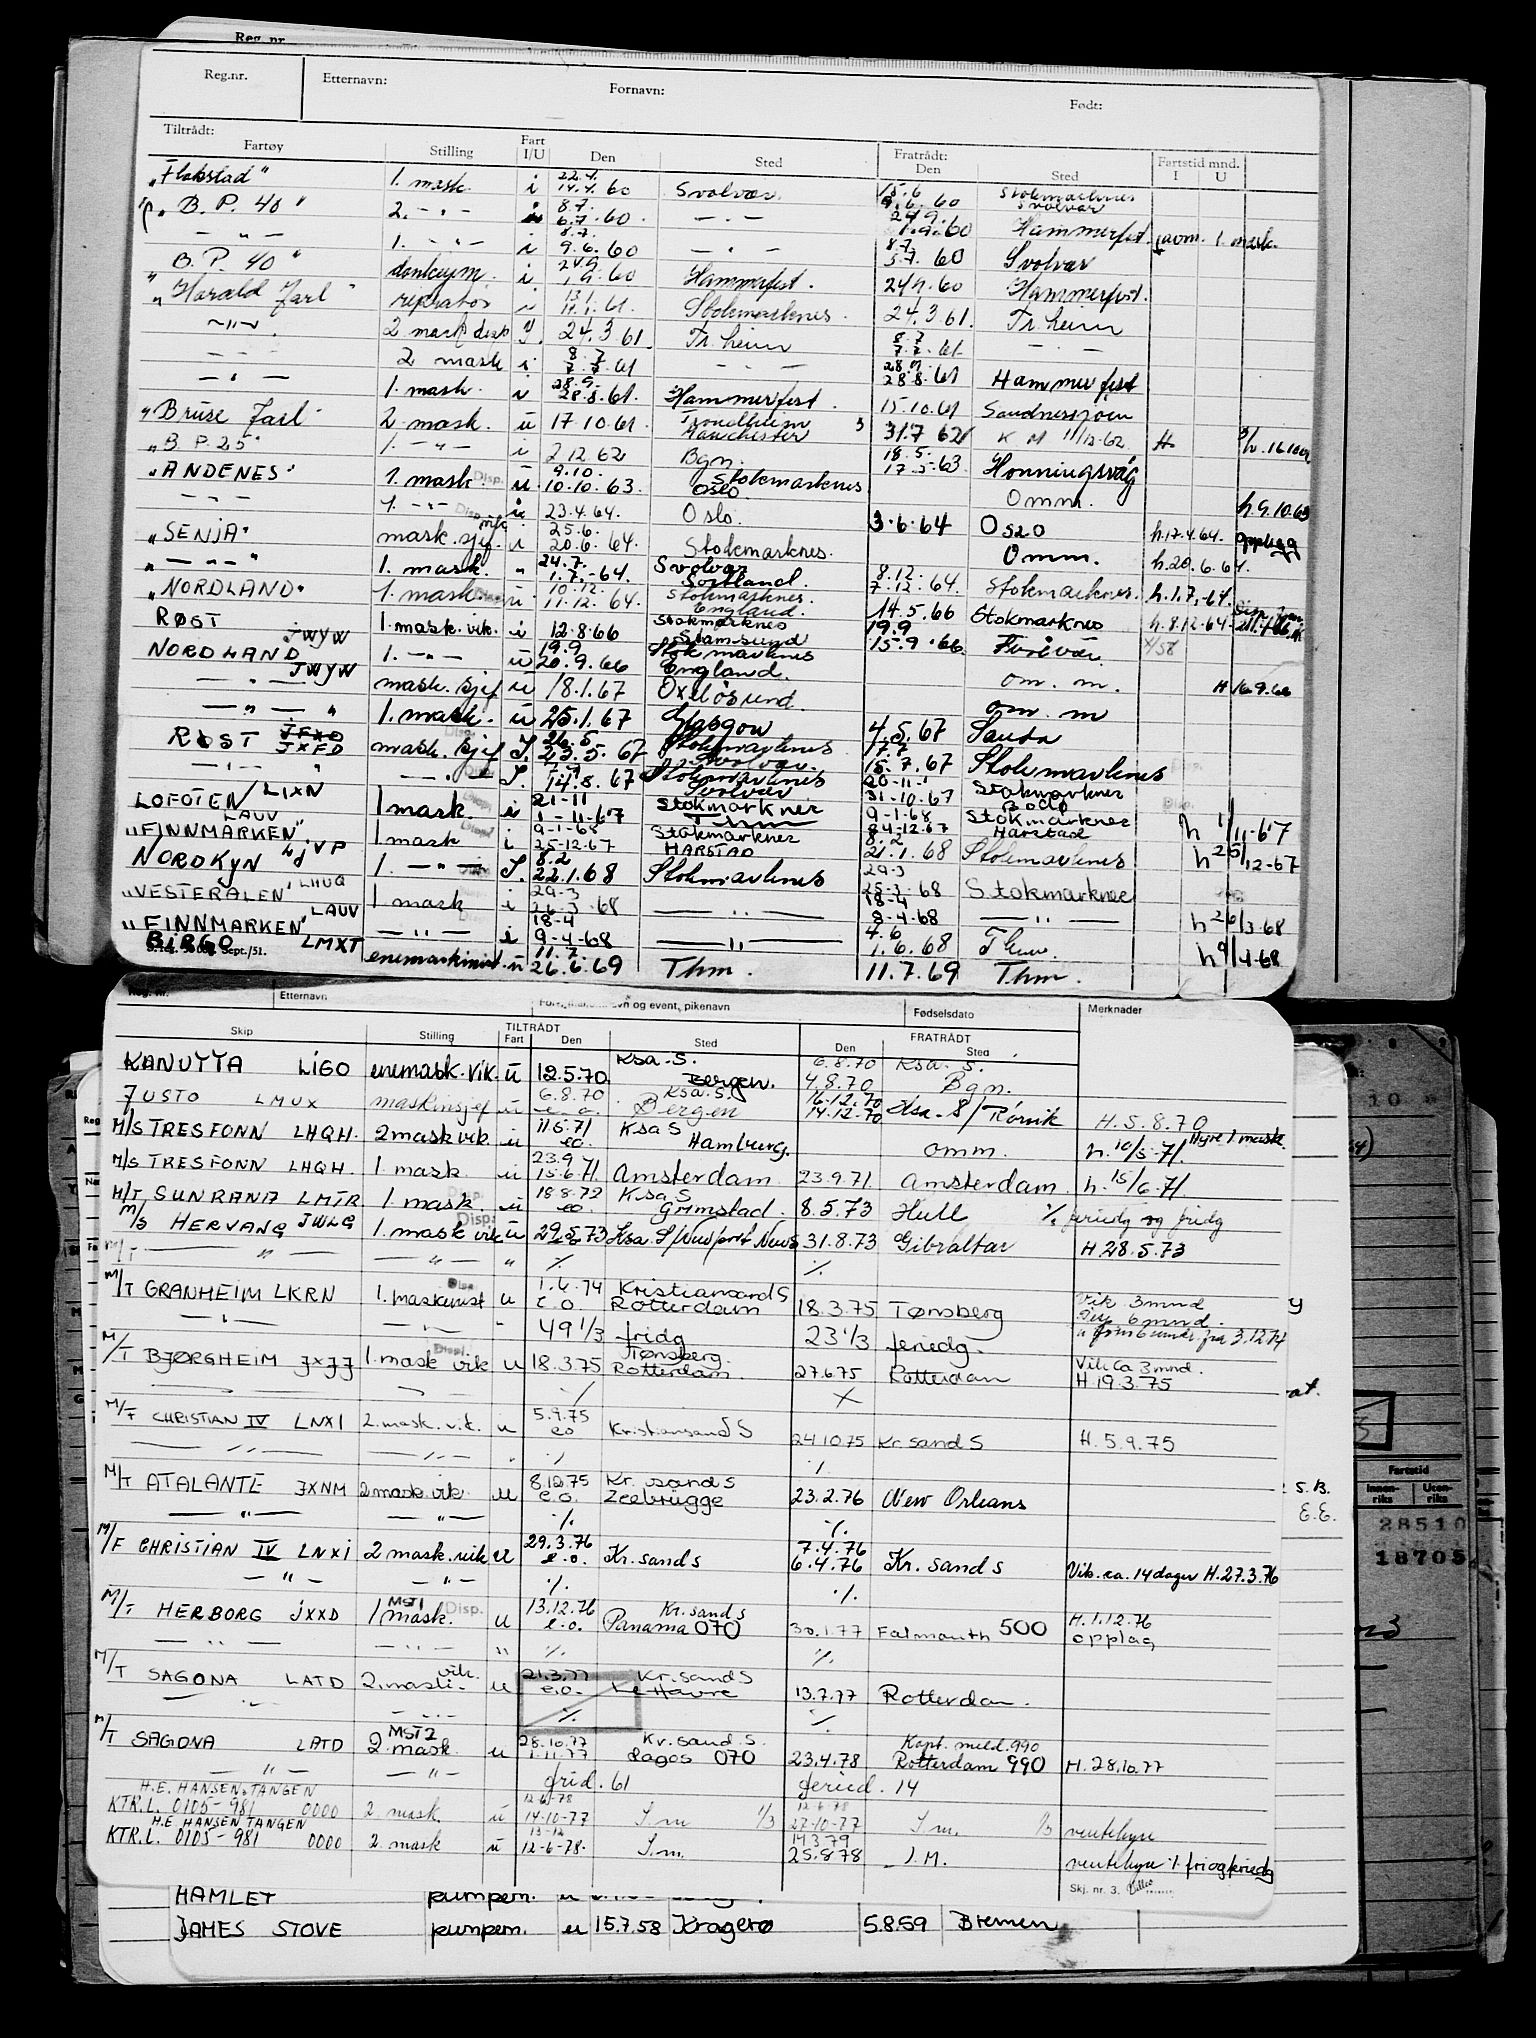 Reg. nr.
Reg.nr. Etternavn: Fornavn: Født:
Tiltrådt: Fratrådt: Fartstid mnd.
Fartøy Stilling Fart I/U Den Sted Den Sted I U
„Flakstad" 1. mask. i 22.4. 14.4.60 Svolvær. 15.6 9.6.60 Stokmarknes Svolvær
„B.P. 40" 2. -„- 8.7. 6.7.60. -„- 24/9. 1.9.60 Hammerfest. (avm. 1. mask.
-„- 1. -„- i 8.7. 9.6.60 -„- 8.7 5.7.60 Svolvær
„B.P. 40" donkeym. i 24.9 1.9.60 Hammerfest. 24/9.60 Hammerfest.
„Harald Jarl" reparatør 13.1. 61. Stokmarknes. 24.3.61. Tr.heim
-„- 2 mask disp I. 24.3.61. Tr.heim 8.7 7.7.61 -„-
-„- 2 mask i 8.7 7.7.61 -„- 28.9. 28.8.61 Hammerfest
-„- 1. mask. i 28.9. 28.8.61. Hammerfest. 15.10.61 Sandnessjøen
„Bruse Jarl" 2 mask. u 17.10.61. Trondheim Manchester 31.7.62
„B P. 25" 1. -„- i 2.12.62 Bgn. 18.5. 17.5.63. Honningsvåg
„ANDENES" 1. mask. Disp. u. 9.10. 10.10.63. Stokmarknes Oslo Omm. h.9.10.63
-„- 1. -„- Disp. 23.4.64. Oslo. 3.6.64 Oslo h.17.4.64. opplag
„SENJA" mask.sjef. i 25.6. 20.6.64. Stokmarknes. Omm. h.20.6.64.
-„- 1. mask. " 24.7. 1.7.-64. Svolvær Sortland. 8.12. 7.12.64 Stokmarknes. h.1.7.-64.
„NORDLAND" 1. mask. u 10.12. 11.12.64. Stokmarknes. England. 14.5.66 Stokmarknes h.8.12.64
RØST 1.mask.vik. i 12.8.66 Stokmarknes Stamsund 19.9 15.9.66. Svolvær.
NORDLAND JWYW 1. -„- u 19.9 20.9.66 Stokmarknes England. om. m. H 16.9.66
-„- JWYW mask. sjef u 18.1.67 Oxelösund. om. m
-„- 1. mask. u 25.1.67 Glasgow 4.5.67 Sauda
RØST JXFD mask. sjef I. 26.5 23.5.67 Stokmarknes Svolvær. 17.7 15.7.67 Stokmarknes
-„- -„- I. 14.8.67 Stokmarknes Svolvær 20-11- 31-10.67 Stokmarknes Bodø
LOFOTEN/LIXN 1 mask. i 21-11 1-11-67 Stokmarknes Thm 9-1-68 24-12-67 Stokmarknes Harstad h 1/11-67
„FINNMARKEN" LAUV 1 mask i 9-1-68 25-12-67 Stokmarknes HARSTAD 8.2 21.1.68 Stokmarknes h 25/12-67
NORDKYN 1. -„- I. 8.2 22.1.68 Stokmarknes 29-3 25-3-68 Stokmarknes
„VESTERÅLEN" LHUQ 1 mask i 29-3 26-3-68 -„- 18-4 8-4-68 -„- h 26/3-68
„FINNMARKEN" LAUV -„- i 18-4 9-4-68 -„- 4.6 1.6.68 Thm. h 9/4-68
BIRGO LMXT enemaskinist u 11.7. 26.6.69 Thm. 11.7.69 Thm.
Sept./51.
Reg. nr. Etternavn og event. pikenavn Fødselsdato Merknader
TILTRÅDT FRATRÅDT
Skip Stilling Fart Den Sted Den Sted
KANUTTA LIGO enemask.vik. u 12.5.70 Ksa.S. Bergen. 6.8.70 4.8.70 Ksa. S. Bgn.
JUSTO LMUX maskinsjef u 6.8.70 e.o. Ksa.S. Bergen 16.12.70 14.12.70 Ksa. S/Rörvik H.5.8.70
M/S TRESFONN LHQH. 2mask vik u 11.5.71 eo. Ksa S Hamburg. omm. h.10/5-71. Hyre 1 mask
M/S TRESFONN LHQH. 1. mask. u 23.9 15.6.71. Amsterdam 23.9.71. Amsterdam. h.15/6.71
M/T SUNRANA LMTR 1. mask. Disp. u 18.8.72 eo. Ksa S Grimstad. 8.5.73 Hull ./. feriedg og fridg
M/S HERVANG JWLG 1. mask vik Disp. u 29.5.73 Ksa.S/Newport News 31.8.73 Gibraltar H.28.5.73
-„- -„- " ./. ./.
M/T GRANHEIM LKRN 1. maskinist Disp. u 1.6.74 e.o. KristiansandS Rotterdam 18.3.75 Tønsberg Vik 3mnd
-„- -„- 49 1/3 fridg 23 1/3 feriedg.
M/T BJØRGHEIM JXJJ 1.mask vik Disp. u 18.3.75 Tønsberg. Rotterdam. 27.6.75 Rotterdam Vik Ca 3mnd. H.19.3.75
./.
M/F CHRISTIAN IV LNXI 2.mask. vik. u 5.9.75 eo Kristiansand S 24.10.75 Kr sand S H.5.9.75
-„- -„- ./. ./.
M/T ATALANTE JXNM 2 mask.vik. u 8.12.75 e.o. Kr. sand S Zeebrügge 23.2.76 New Orleans
-„- -„- ./. ./.
M/F CHRISTIAN IV LNXI 2 mask.vik u 29.3.76 e.o. Kr.sand S 7.4.76 6.4.76 Kr.sand S Vik.ca.14dager H.27.3.76
-„- -„- ./. ./.
M/T HERBORG JXXD MST1 1 mask. Disp. u 13.12.76 e.o. Kr.sand S Panama 070 30.1.77 Falmouth 500 H.1.12.76 opplag
-„- -„- " ./. ./.
M/T SAGONA LATD 2.mask. vik. u 21.3.77 e.o. Kr.sand S Le Havre 13.7.77 Rotterdam.
-„- -„- ./. ./.
M/T SAGONA LATD MST2 2 mask. u 28.10.77 1.11.77 Kr.sand.S. Lagos 070 23.4.78 Kapt. meld.990 Rotterdam 990 H.28.10.77
-„- -„- frid. 61 feried. 14
H.E. HANSEN-TANGEN
KTR.L. 0105-981 0000 2. mask. u 12-6-78 14-10-77 I m 1/3 12-6-78 27-10-77 I m. 1/3 ventehyre
H.E HANSEN TANGEN
KTR.L. 0105-981 0000 2 mask u 12-6-78. I.m. 14.3.79 25.8.78 I.M. ventehyre ./. fri og feriedg
Skj. nr. 3.
HAMLET pumpem. u
JAMES STOVE pumpem. u 15.7.58 Kragerø 5.8.59 Bremen
Fartstid
Innen-riks Uten-riks
28510
18705
S.B.
E.E.